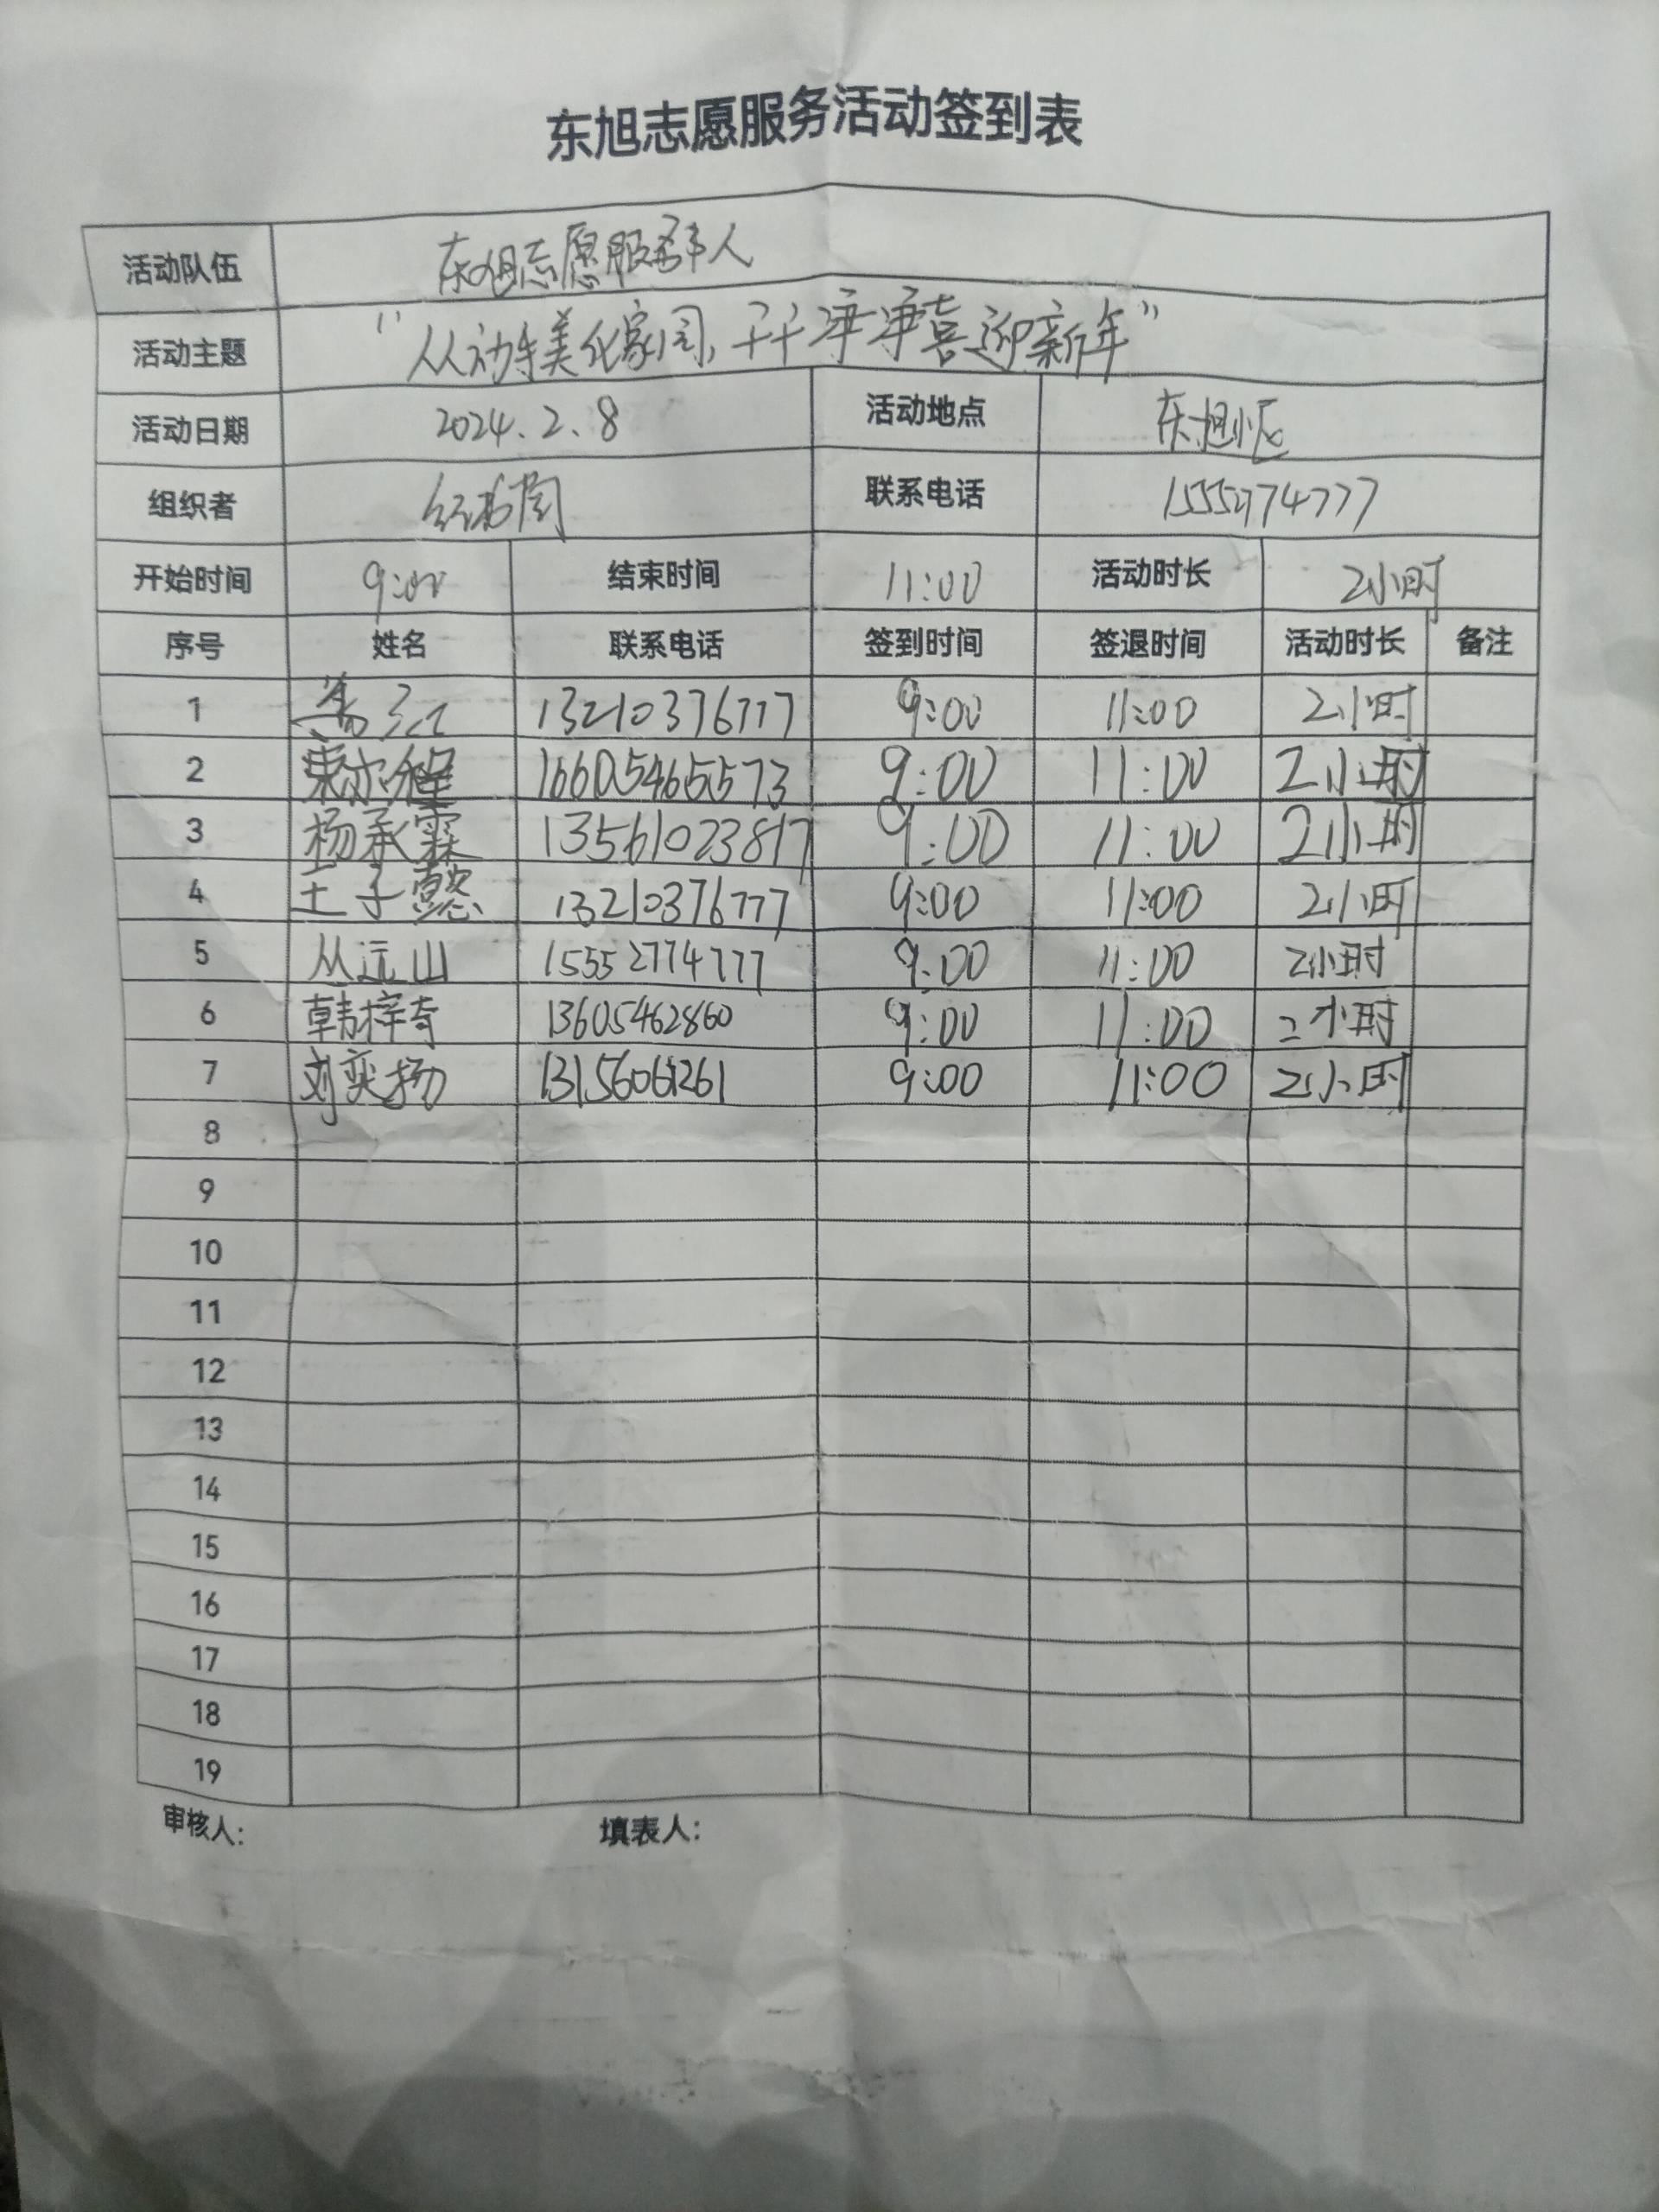 东旭志愿服务活动签到表
活动队伍 东旭志愿服务人
活动主题 "从动手美化家园,干干净净喜迎新年"
活动日期 2024.2.8 活动地点 东旭小区
组织者 联系电话
开始时间 9:00 结束时间 11:00 活动时长 2小时
序号 姓名 联系电话 签到时间 签退时间 活动时长 备注
1 13210376777 9:00 11:00 2小时
2 16605465573 9:00 11:00 2小时
3 杨承霖 13561023817 9:00 11:00 2小时
4 王子懿 13210376777 9:00 11:00 2小时
5 丛远山 15552774777 9:00 11:00 2小时
6 韩梓奇 13605462860 9:00 11:00 二小时
7 刘奕扬 9:00 11:00 2小时
8
9
10
11
12
13
14
15
16
17
18
19
审核人: 填表人: